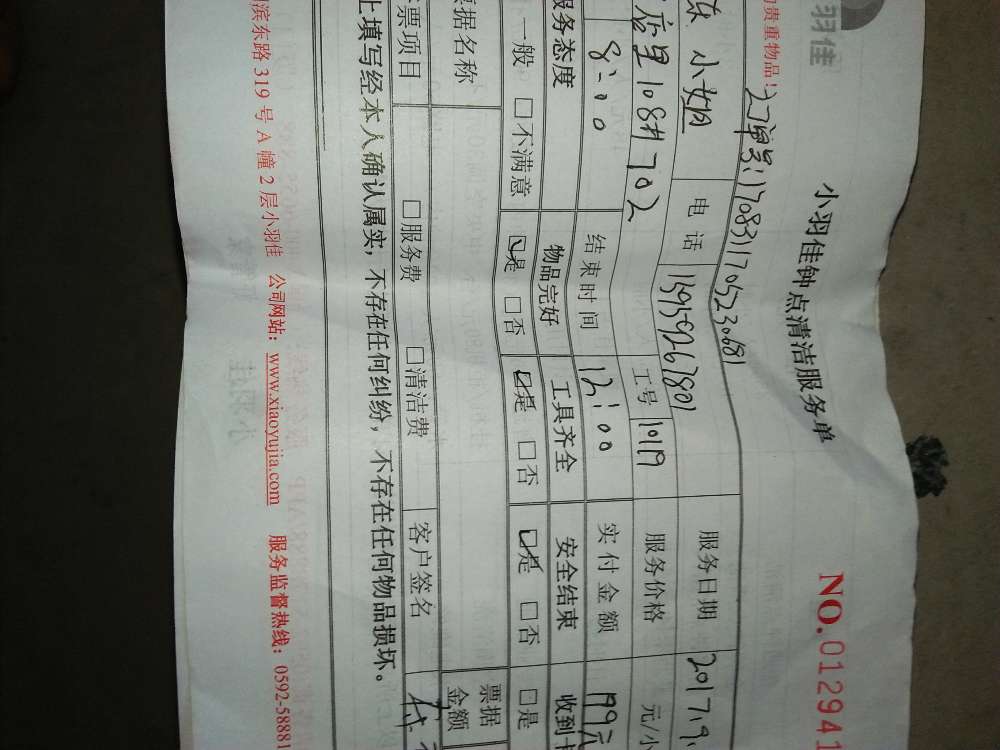 小羽佳钟点清洁服务单 NO.0129941
贵重物品！ 订单号:17083170523068
小姐 电话 13959267801 服务日期 2017.9.
店里108#702 工号 10119 服务价格 元/小
8:00 结束时间 12:00 实付金额 199元
服务态度 物品完好 工具齐全 安全结束 收到卡
一般 □不满意 □是 □否 □是 □否 □是 □否 □是
票据名称 票据金额
票项目 □服务费 □清洁费 客户签名
上填写经本人确认属实，不存在任何纠纷，不存在任何物品损坏。
滨东路319号A幢2层小羽佳 公司网站：www.xiaoyujia.com 服务监督热线：0592-58881